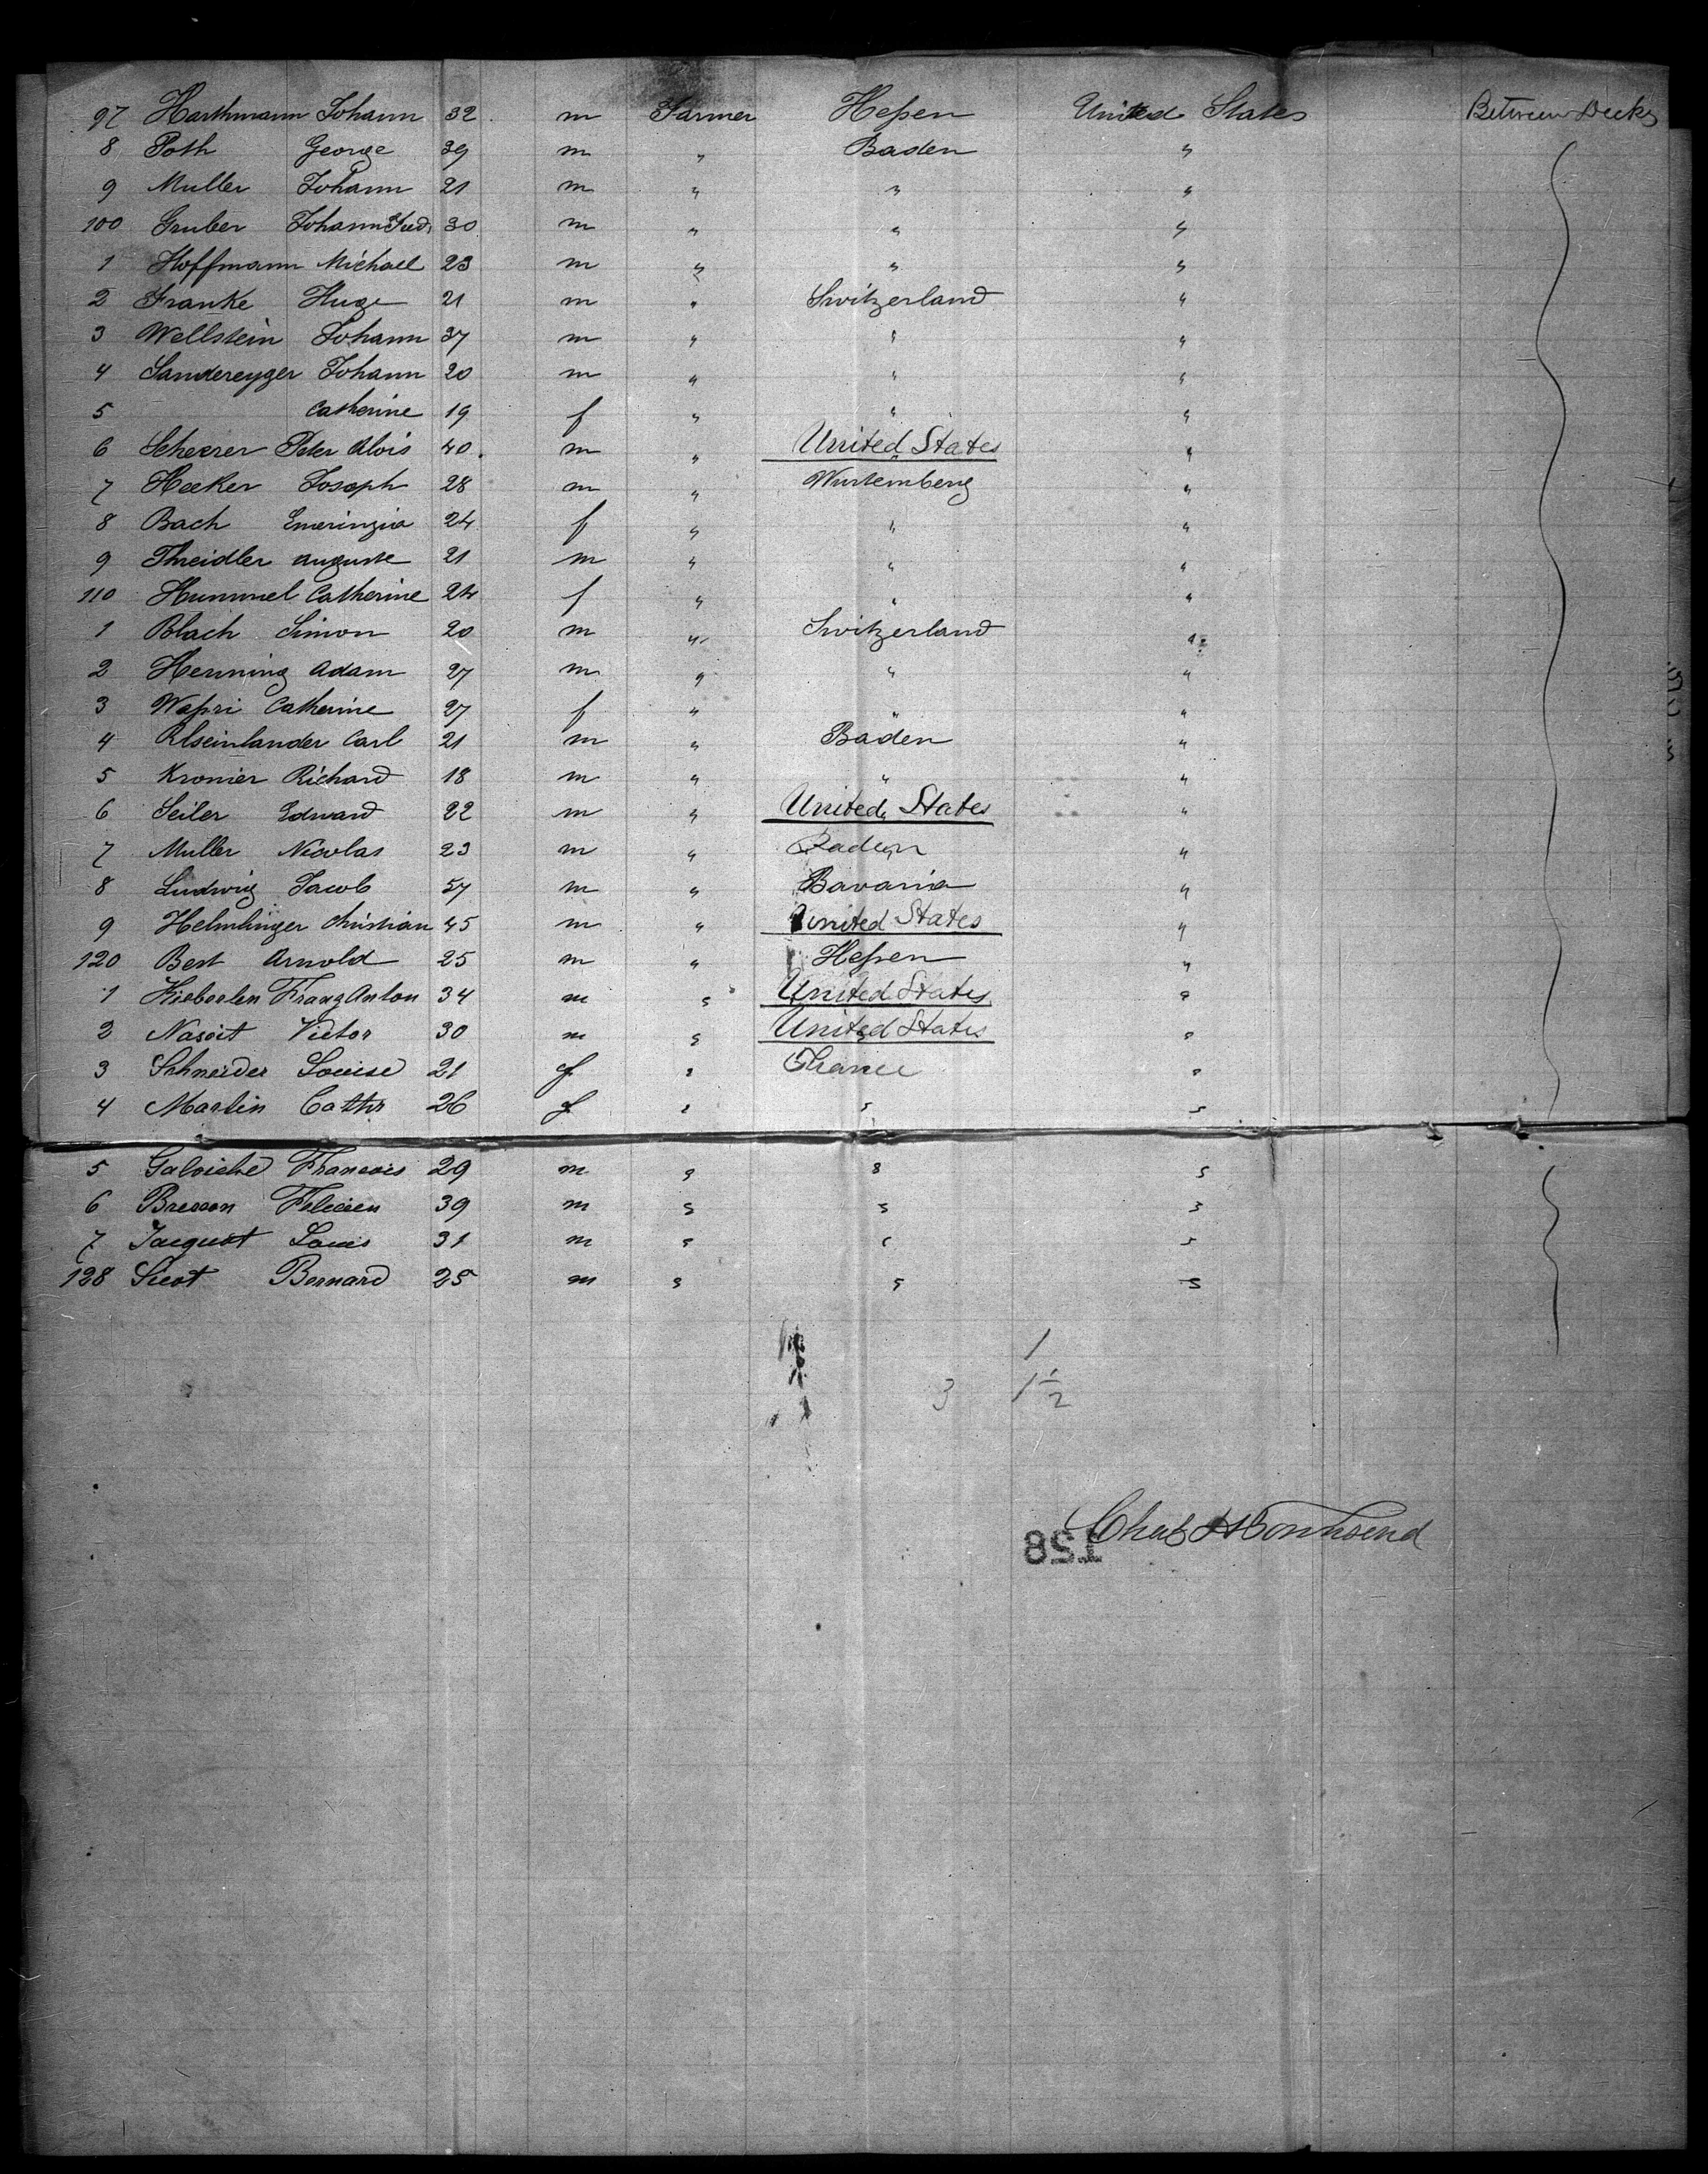 97 Harthmann Johann 32 m Farmer Heſsen United States Between Decks
8 Poth George 39 m " Baden "
9 Muller Johann 21 m " " "
100 Gruber Johann Fred. 30 m " " "
1 Hoffmann Michael 23 m " " "
2 Franke Hugo 21 m " Switzerland "
3 Wellstein Johann 37 m " " "
4 Sandereyger Johann 20 m " " "
5 Catherine 19 f " " "
6 Scherrer Peter Alois 40 m " United States "
7 Hecker Joseph 28 m " Wurtemberg "
8 Bach Emeringia 24 f " " "
9 Threidler Auguste 21 m " " "
110 Hummel Catherine 24 f " " "
1 Blach Simon 20 m " Switzerland "
2 Henning Adam 27 m " " "
3 Catherine 27 f " " "
4 Carl 21 m " Baden "
5 Kromer Richard 18 m " " "
6 Seiler Edward 22 m " United States "
7 Muller Nicolas 23 m " Baden "
8 Ludwig Jacob 57 m " Bavaria "
9 Helmlinger Christian 45 m " United States "
120 Best Arnold 25 m " Heſsen "
1 Franz Anton 34 m " United States "
2 Victor 30 m " United States "
3 Schneider Louise 21 f " France "
4 Martin Cathr 26 f " " "
5 Francois 29 m " " "
6 Bresson Felicien 39 m " " "
7 Jacquot Louis 31 m " " "
128 Bernard 25 m " " "
1
3 1 1/2
Chas H Townsend
128